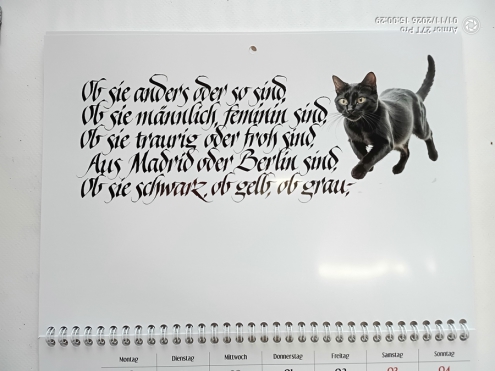 Armor 27T Pro
01/11/2025 15:00:29
Ob sie anders oder so sind,
Ob sie männlich, feminin sind,
Ob sie traurig oder froh sind,
Aus Madrid oder Berlin sind,
Ob sie schwarz, ob gelb, ob grau;
Montag Dienstag Mittwoch Donnerstag Freitag Samstag Sonntag
01 02 03 04